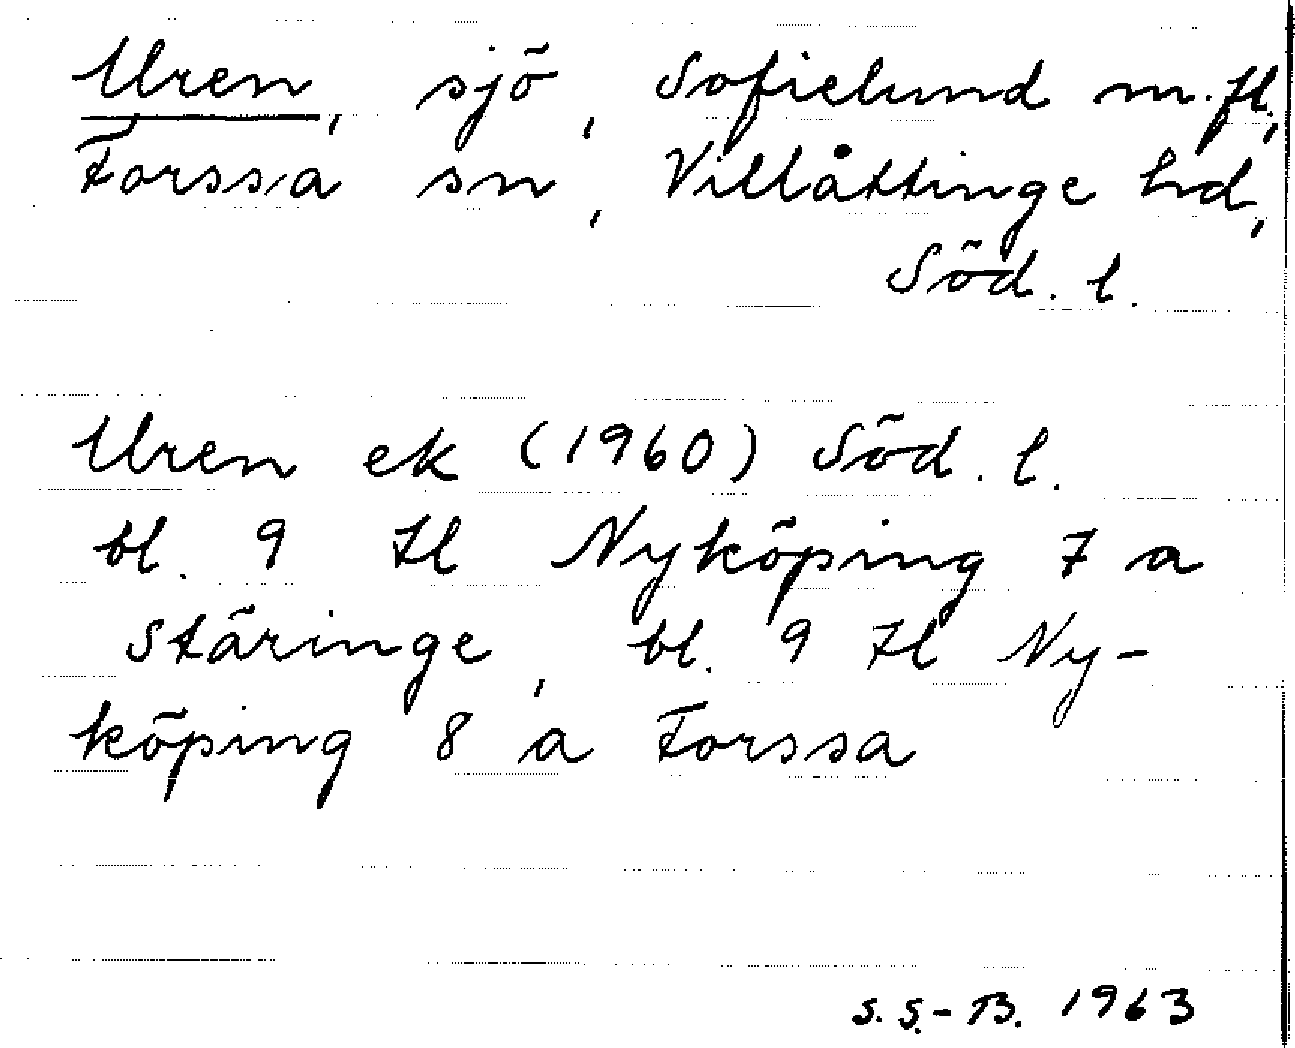 Uren, sjö, Sofielund m.fl.,
Forssa sn, Villåttinge hd,
Söd. l.
Uren ek (1960) Söd. l.
bl. 9 Il Nyköping 7 a
Stäringe, bl. 9 Il Ny-
köping 8 a Forssa
S. S.-B. 1963